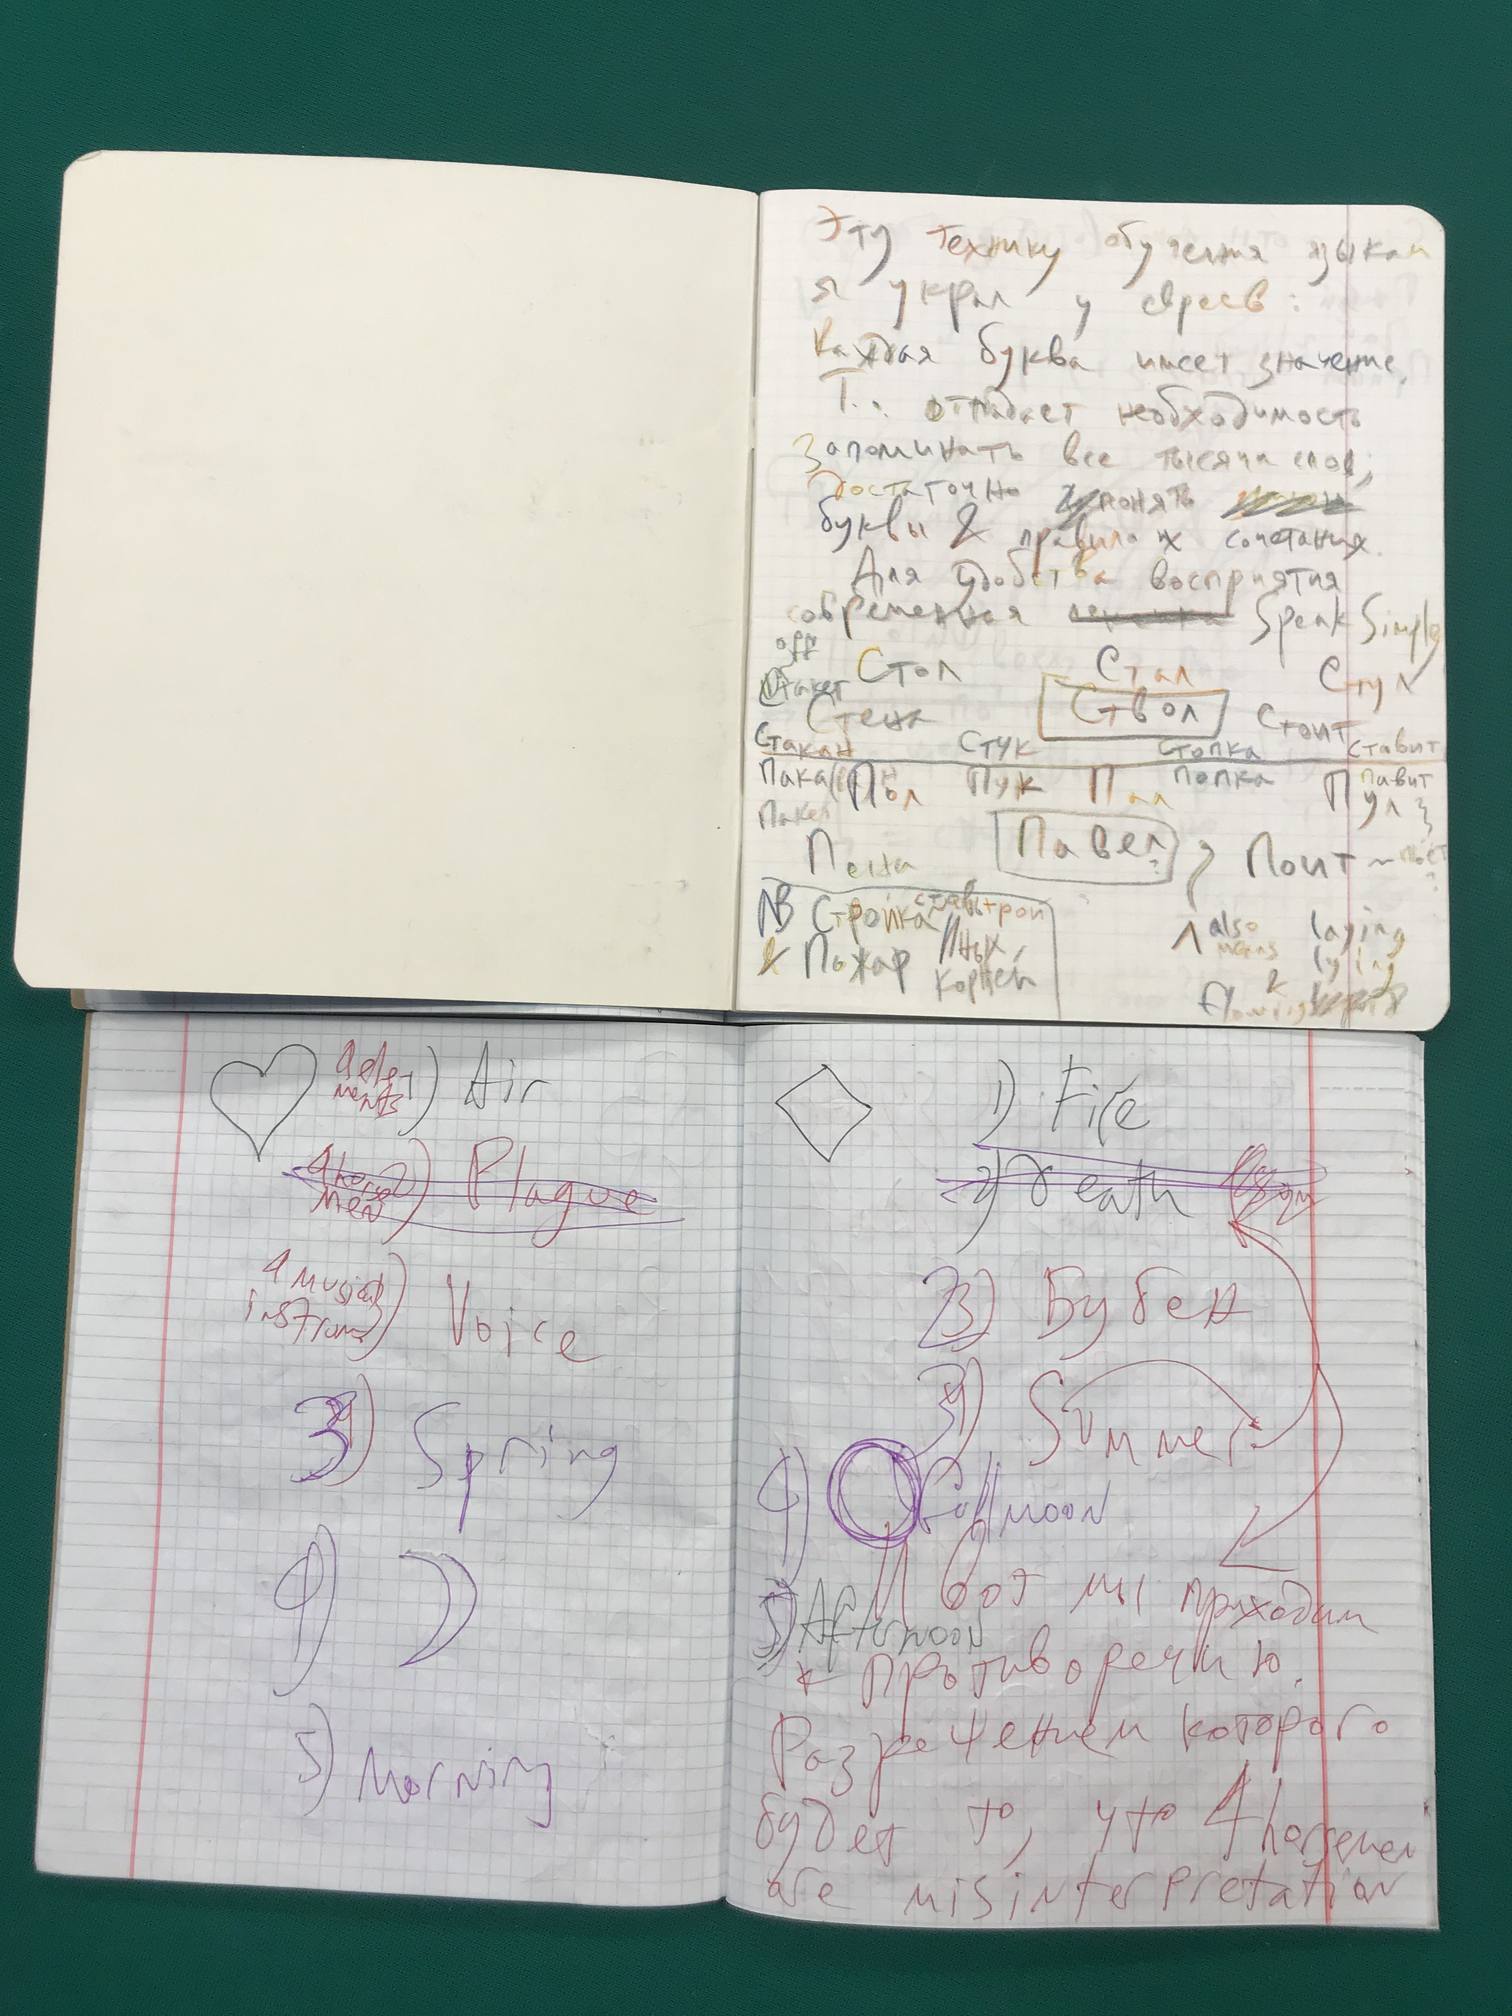 Эту технику обучения языкам
я украл у евреев:
Каждая буква имеет значение.
Т.. отпадает необходимость
запоминать все тысячи слов,
достаточно понять
буквы & правила их сочетания.
Для удобства восприятия
современная Speak Simple
off
Стол Стал Стул
Стакет
Стена Ствол Стоит
Стакан Стук Стопка Ставит
Пакан Пол Пук Пал Попка Павит
Пакет Пул }
Пена Павел ? Поит ~ поёт
?
NB Стройка
& Пожар ных корней
Λ also means laying
lying
& flowing
4 elements 1) Air
4 horsemen 2) Plague
4 musical instrum 3) Voice
3) Spring
4)
5) Morning
1) Fire
2) Death
2) Бубен
3) Summer
4) Full moon
И вот мы приходим
5) Afternoon
к противоречию.
Разрешением которого
будет то, что 4 horsemen
are misinterpretation